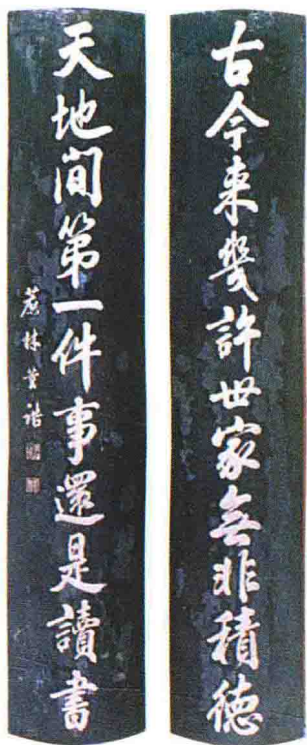 古今来幾許世家無非積德
天地間第一件事還是讀書
蔗林董誥